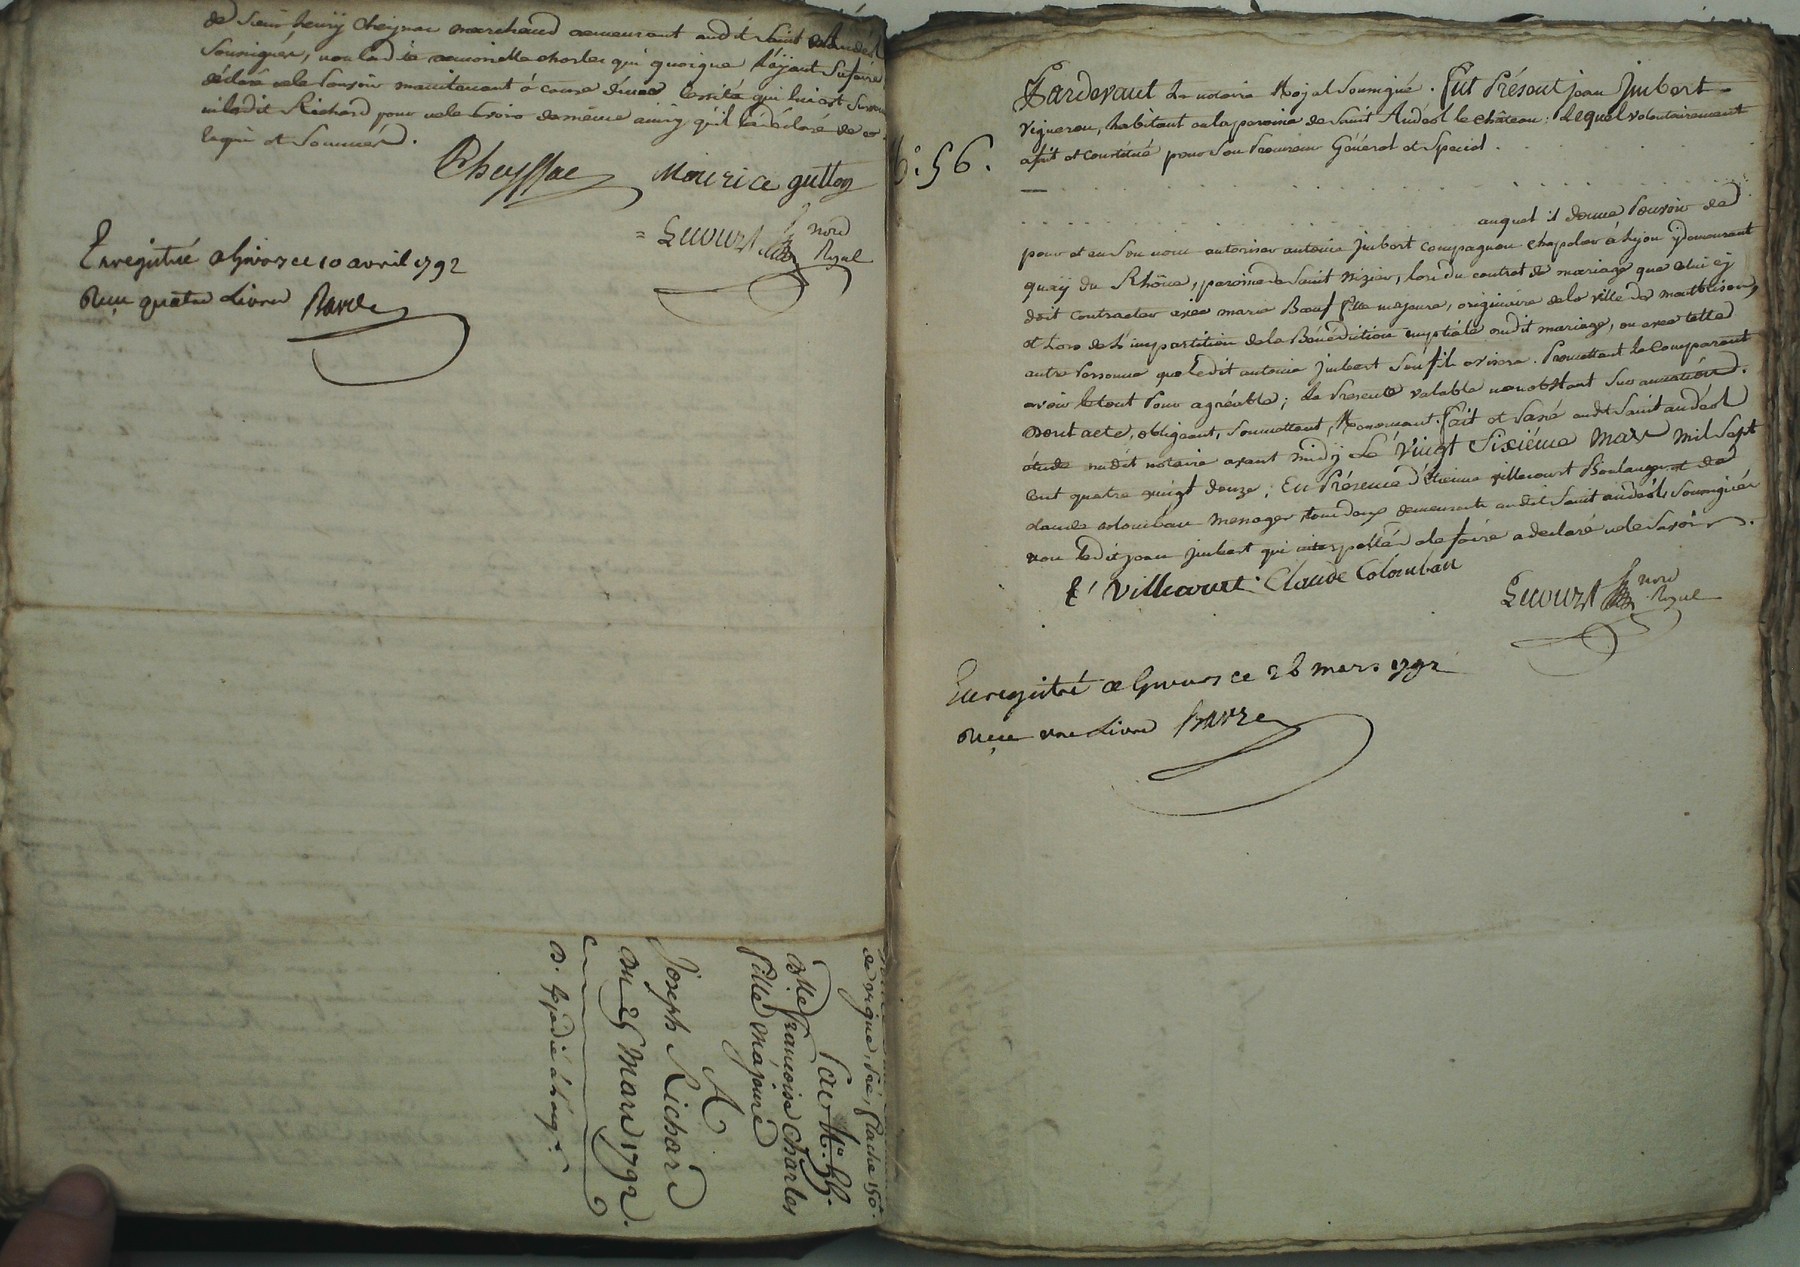 de Sieur henry Cheyssac marchand demeurant audit Saint Andéol
Soussignés, non ladite demoiselle charles qui quoique l'ayant Sçu faire
déclaré ne le pouvoir maintenant à cause d'une qui lui est
ni ledit Richard pour ne le Savoir de même ainsy qu'il l'a déclaré de ce
requis et Sommés.
Cheyssac Mourice gutton
= Lecourt nore Royal
Enregistré a Givors ce 10 avril 1792
Reçu quatre Livres Barre
de vigne, Pré,
Par
Dlle francoise Charles
fille Majeure
A
Joseph Richard
Du 25 Mars 1792.
D. Expédié à l'acqr.
No. 56.
Pardevant Le notaire Royal Soussigné. Fut Présent jean Jmbert
vigneron, habitant de la paroisse de Saint Andéol le château; Lequel volontairement
a fait et Constitué pour Son Procureur Général et Special
auquel il donne Pouvoir de
pour et en Son nom autoriser antoine jmbert compagnon chapelier à Lyon y demeurant
quay du Rhône, paroisse de Saint Nizier, lors du contrat de mariage que celui cy
doit contracter avec marie Bœuf fille majeure, originaire de la ville de montbrison,
et Lors de L'impartition de la Bénédiction nuptiale audit mariage, ou avec telle
autre Personne que Ledit antoine jmbert Son fils avisera. Promettant le Comparant
avoir le tout Pour agréable; La Presente valable nonobstant Surannation.
Dont acte, obligeant, Soumettant, Renonçant. Fait et Passé audit Saint andéol
étude dudit notaire avant midy Le Vingt Sixiéme Mars mil Sept
Cent quatre vingt douze; En Présence d'Etienne villecourt Boulanger et de
claude colomban menager tous deux demeurants audit Saint andéol, Soussignés
non ledit jean jmbert qui interpellé de le faire a declaré ne le Savoir.
E Villecourt Claude Colomban
Lecourt nore Royal
Enregistré a Givors ce 26 mars 1792
Reçu une Livre Barre